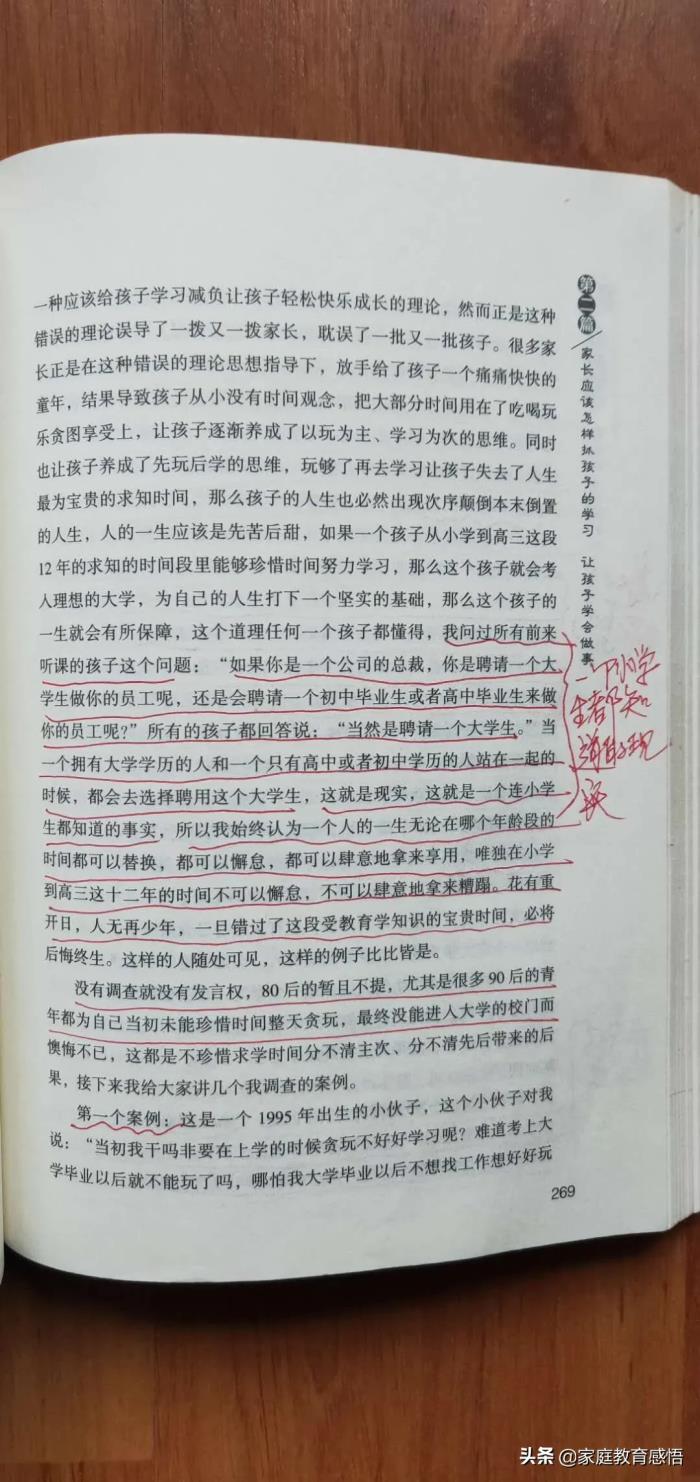 一种应该给孩子学习减负让孩子轻松快乐成长的理论，然而正是这种
错误的理论误导了一拨又一拨家长，耽误了一批又一批孩子。很多家
长正是在这种错误的理论思想指导下，放手给了孩子一个痛痛快快的
童年，结果导致孩子从小没有时间观念，把大部分时间用在了吃喝玩
乐贪图享受上，让孩子逐渐养成了以玩为主、学习为次的思维。同时
也让孩子养成了先玩后学的思维，玩够了再去学习让孩子失去了人生
最为宝贵的求知时间，那么孩子的人生也必然出现次序颠倒本末倒置
的人生，人的一生应该是先苦后甜，如果一个孩子从小学到高三这段
12年的求知的时间段里能够珍惜时间努力学习，那么这个孩子就会考
入理想的大学，为自己的人生打下一个坚实的基础，那么这个孩子的
一生就会有所保障，这个道理任何一个孩子都懂得，我问过所有前来
听课的孩子这个问题：“如果你是一个公司的总裁，你是聘请一个大
学生做你的员工呢，还是会聘请一个初中毕业生或者高中毕业生来做
你的员工呢？”所有的孩子都回答说：“当然是聘请一个大学生。”当
一个拥有大学学历的人和一个只有高中或者初中学历的人站在一起的
时候，都会去选择聘用这个大学生，这就是现实，这就是一个连小学
生都知道的事实，所以我始终认为一个人的一生无论在哪个年龄段的
时间都可以替换，都可以懈怠，都可以肆意地拿来享用，唯独在小学
到高三这十二年的时间不可以懈怠，不可以肆意地拿来糟蹋。花有重
开日，人无再少年，一旦错过了这段受教育学知识的宝贵时间，必将
后悔终生。这样的人随处可见，这样的例子比比皆是。
没有调查就没有发言权，80后的暂且不提，尤其是很多90后的青
年都为自己当初未能珍惜时间整天贪玩，最终没能进入大学的校门而
懊悔不已，这都是不珍惜求学时间分不清主次、分不清先后带来的后
果，接下来我给大家讲几个我调查的案例。
第一个案例：这是一个1995年出生的小伙子，这个小伙子对我
说：“当初我干吗非要在上学的时候贪玩不好好学习呢？难道考上大
学毕业以后就不能玩了吗，哪怕我大学毕业以后不想找工作想好好玩
269
第二篇
家长应该怎样抓孩子的学习 让孩子学会做事
一个小学
生都知
道的现
实
头条 @家庭教育感悟